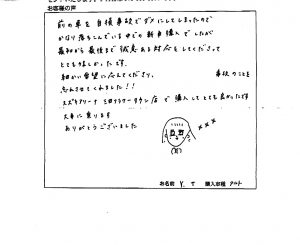 お客様の声
前の車を自損事故でダメにしてしまったので
かなり落ちこんでいる中での新車購入でしたが
最初から最後まで誠意ある対応をしてくださって
とてもうれしかったです。
細かい希望に応えてくださり、事故のことを
忘れさせてくれました!!
スズキアリーナ 店で購入してとても良かったです
大事に乗ります
ありがとうございました
お名前 Y.T 購入車種 アルト